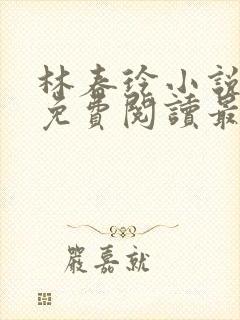 林春玲小說
免費閱讀最
嚴嘉就